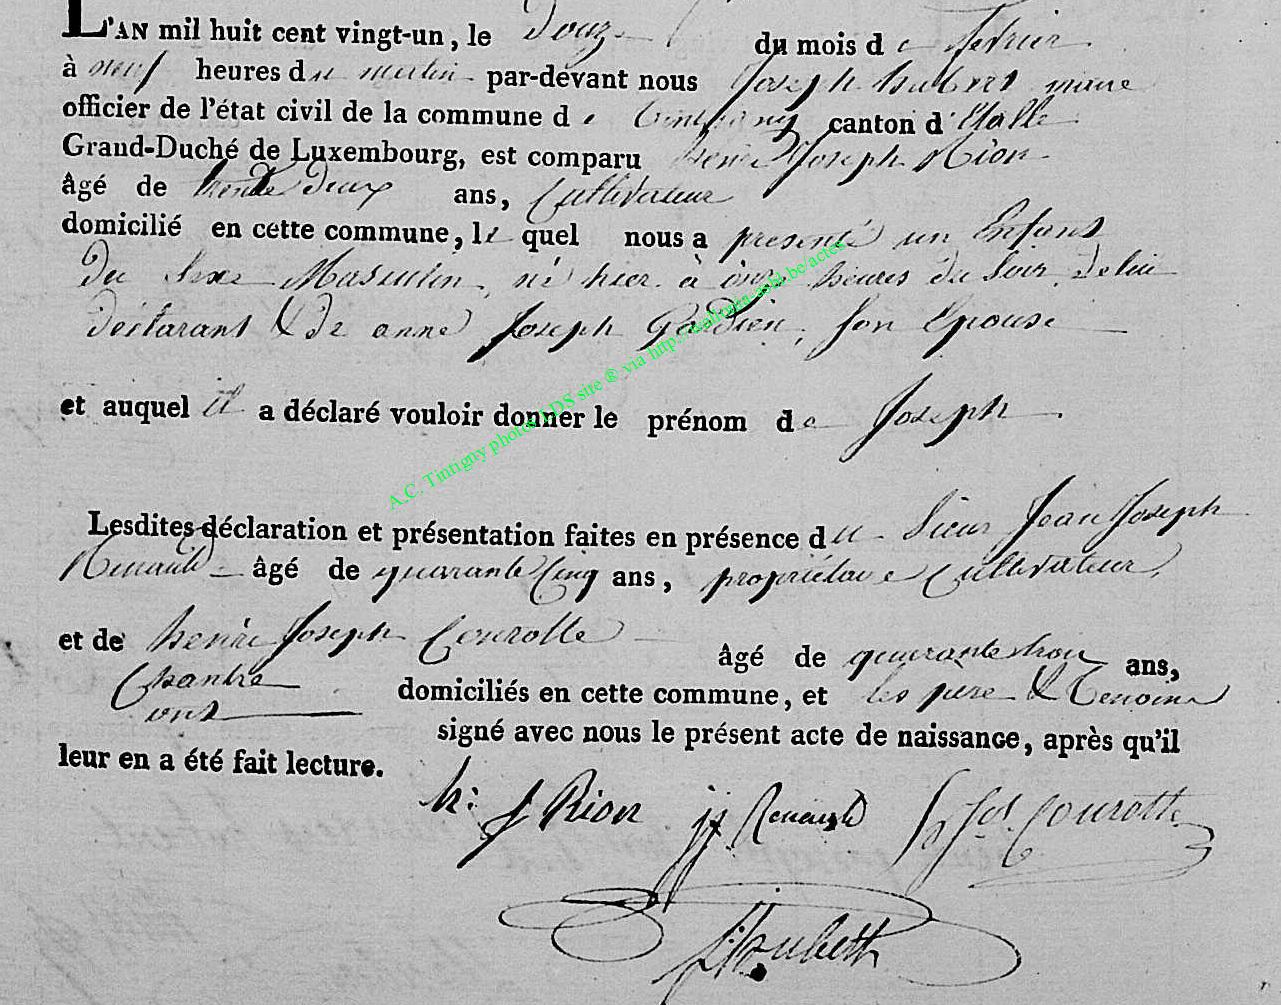 L'AN mil huit cent vingt-un, le Douze du mois de fevrier
à neuf heures du matin par-devant nous Joseph hubert maire
officier de l'état civil de la commune de tintigny canton d'Etalle
Grand-Duché de Luxembourg, est comparu henri Joseph Rion
âgé de trente deux ans, Cultivateur
domicilié en cette commune, le quel nous a presenté un Enfant
du Sexe Masculin, né hier à onze heures du Soir, de lui
déclarant & de anne Joseph Gardien, son Epouse
et auquel il a déclaré vouloir donner le prénom de Joseph
Lesdites déclaration et présentation faites en présence du Sieur Jean Joseph
Renauld âgé de quarante Cinq ans, propriétaire Cultivateur,
et de henri Joseph Courotte âgé de quarante trois ans,
Chantre domiciliés en cette commune, et les pere & temoins
ont signé avec nous le présent acte de naissance, après qu'il
leur en a été fait lecture.
h: J Rion jj Renauld h Jos. Courotte
J: hubert
A.C. Tintigny photos LDS site ® via http://wallonia-asbl.be/actes